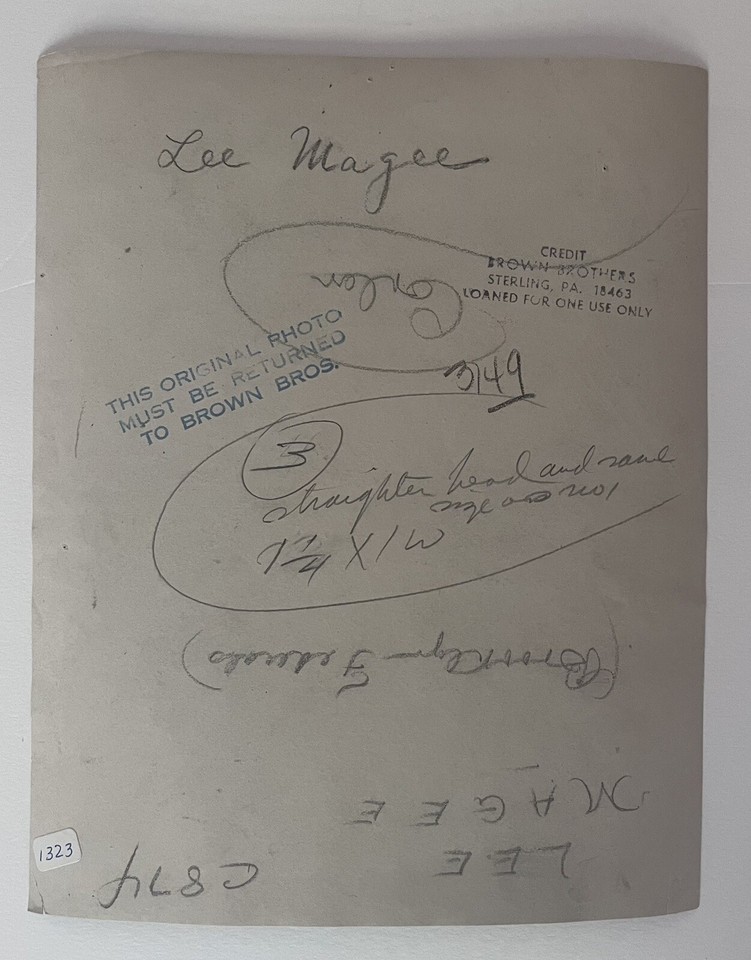 Lee Magee
Conlon
CREDIT
BROWN BROTHERS
STERLING, PA. 18463
LOANED FOR ONE USE ONLY
THIS ORIGINAL PHOTO
MUST BE RETURNED
TO BROWN BROS.
3149
3
straighten head and same
size as no 1
1 1/4 X 1 W
(Brooklyn Federals)
LEE
MAGEE
1323